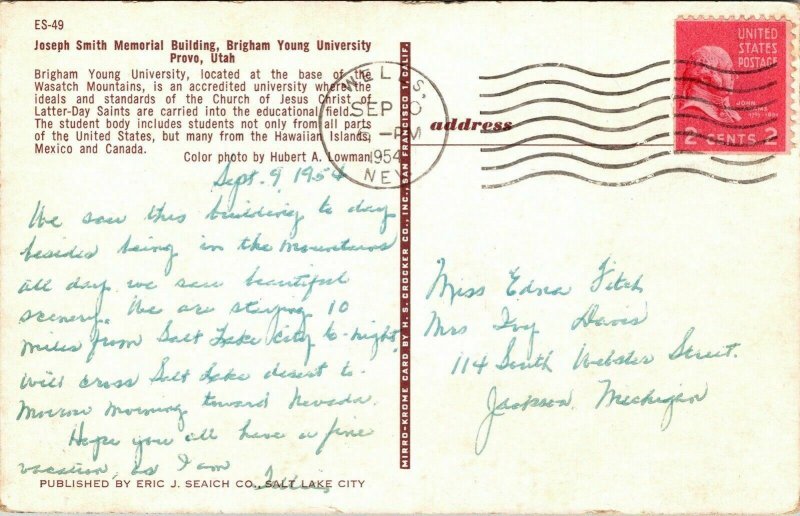 ES-49
Joseph Smith Memorial Building, Brigham Young University
Provo, Utah
Brigham Young University, located at the base of the
Wasatch Mountains, is an accredited university where the
ideals and standards of the Church of Jesus Christ of
Latter-Day Saints are carried into the educational field.
The student body includes students not only from all parts
of the United States, but many from the Hawaiian Islands,
Mexico and Canada.
Color photo by Hubert A. Lowman
Sept. 9 1954
We saw this building to day
besides being in the mountains
all day we saw beautiful
scenery. We are staying 10
miles from Salt Lake City to-night
will cross Salt Lake desert to-
morrow morning toward Nevada.
Hope you all have a fine
vacation, as I am
PUBLISHED BY ERIC J. SEAICH CO., SALT LAKE CITY
MIRRO-KROME CARD BY H. S. CROCKER CO., INC., SAN FRANCISCO 1, CALIF.
WELLS,
SEP
PM
1954
NEV
address
UNITED
STATES
POSTAGE
JOHN
ADAMS
2 CENTS 2
Miss Edna Fitch
Mrs Ivy Davis
114 South Webster Street.
Jackson, Michigan